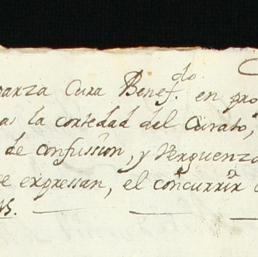 anza Cura Benef.do en pro
a la cortedad del Curato,
de confussion, y verguenza
e expressan, el concurrir